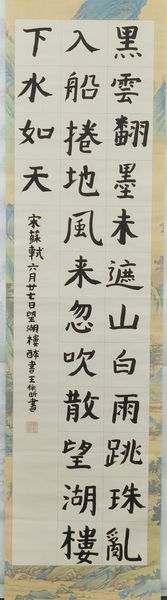 黑雲翻墨未遮山白雨跳珠亂
入船捲地風来忽吹散望湖樓
下水如天
宋蘇軾六月廿七日望湖樓醉書王依昕書